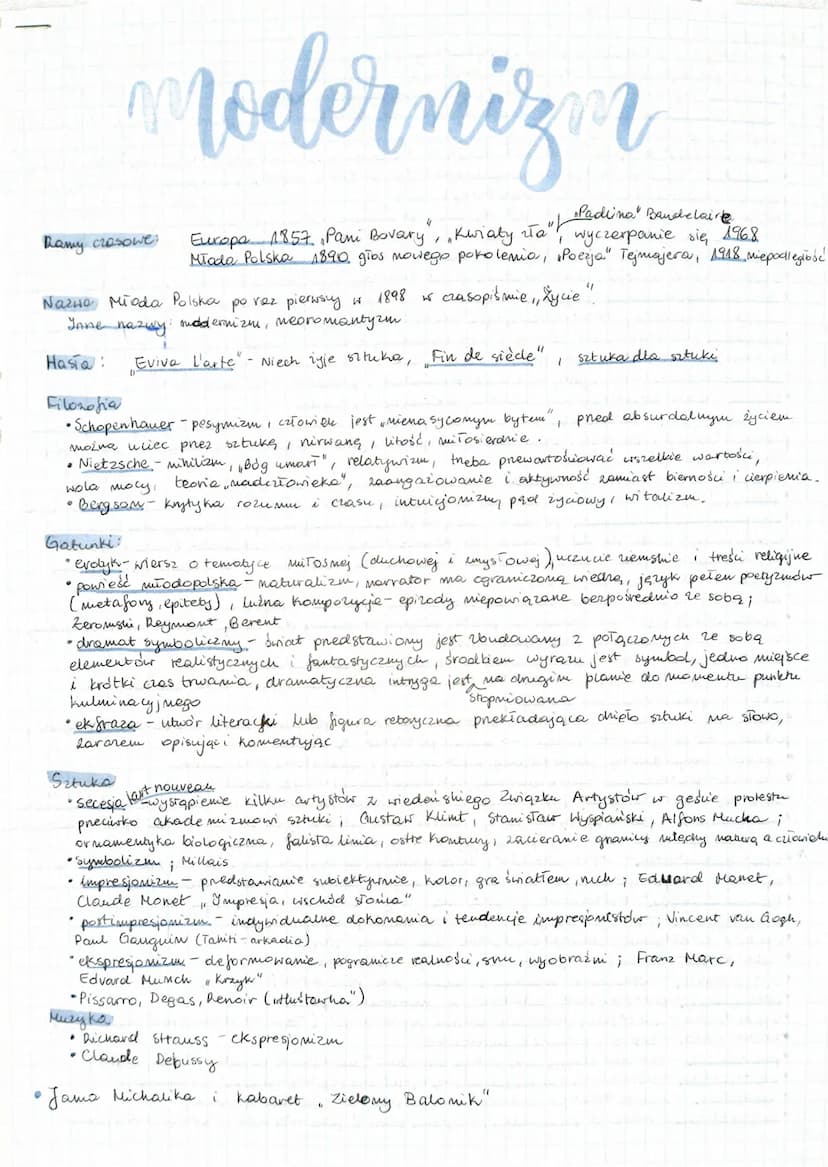 modernizm
„Padlina" Baudelaire
Ramy czasowe: Europa 1857 „Pani Bovary", „Kwiaty zła", wyczerpanie się 1968
Młoda Polska 1890 głos nowego pokolenia, „Poezja" Tejmajera, 1918 niepodległość
Nazwa: Młoda Polska po raz pierwszy w 1898 w czasopiśmie „Życie".
Inne nazwy: modernizm, neoromantyzm
Hasła: „Eviva l'arte" - Niech żyje sztuka, „Fin de siècle", sztuka dla sztuki
Filozofia
• Schopenhauer - pesymizm, człowiek jest „nienasyconym bytem", przed absurdalnym życiem
można uciec przez sztukę, nirwanę, litość, miłosierdzie.
• Nietzsche - nihilizm, „Bóg umarł", relatywizm, trzeba przewartościować wszelkie wartości,
wola mocy, teoria „nadczłowieka", zaangażowanie i aktywność zamiast bierności i cierpienia.
• Bergson - krytyka rozumu i czasu, intuicjonizm, pęd życiowy, witalizm.
Gatunki:
• erotyk - wiersz o tematyce miłosnej (duchowej i zmysłowej), uczucie ziemskie i treści religijne
• powieść młodopolska - naturalizm, narrator ma ograniczoną wiedzę, język pełen poetyzmów
(metafory, epitety), luźna kompozycja - epizody niepowiązane bezpośrednio ze sobą;
Żeromski, Reymont, Berent
• dramat symboliczny - świat przedstawiony jest zbudowany z połączonych ze sobą
elementów realistycznych i fantastycznych, środkiem wyrazu jest symbol, jedno miejsce
i krótki czas trwania, dramatyczna intryga jest na drugim planie do momentu punktu
kulminacyjnego stopniowana
• ekfraza - utwór literacki lub figura retoryczna przekładająca dzieło sztuki na słowo,
zarazem opisując i komentując
Sztuka
• secesja / art nouveau - wystąpienie kilku artystów z wiedeńskiego Związku Artystów w geście protestu
przeciwko akademizmowi sztuki; Gustaw Klimt, Stanisław Wyspiański, Alfons Mucha;
ornamentyka biologiczna, falista linia, ostre kontury, zacieranie granicy między naturą a człowiek
• symbolizm; Millais
• impresjonizm - przedstawianie subiektywnie, kolor, gra światłem, ruch; Eduard Manet,
Claude Monet „Impresja, wschód słońca"
• postimpresjonizm - indywidualne dokonania i tendencje impresjonistów; Vincent van Gogh,
Paul Gauguin (Tahiti - arkadia)
• ekspresjonizm - deformowanie, pogranicze realności, snu, wyobraźni; Franz Marc,
Edvard Munch „Krzyk"
• Pissarro, Degas, Renoir („Huśtawka")
Muzyka
• Richard Strauss - ekspresjonizm
• Claude Debussy
• Jama Michalika i kabaret „Zielony Balonik"